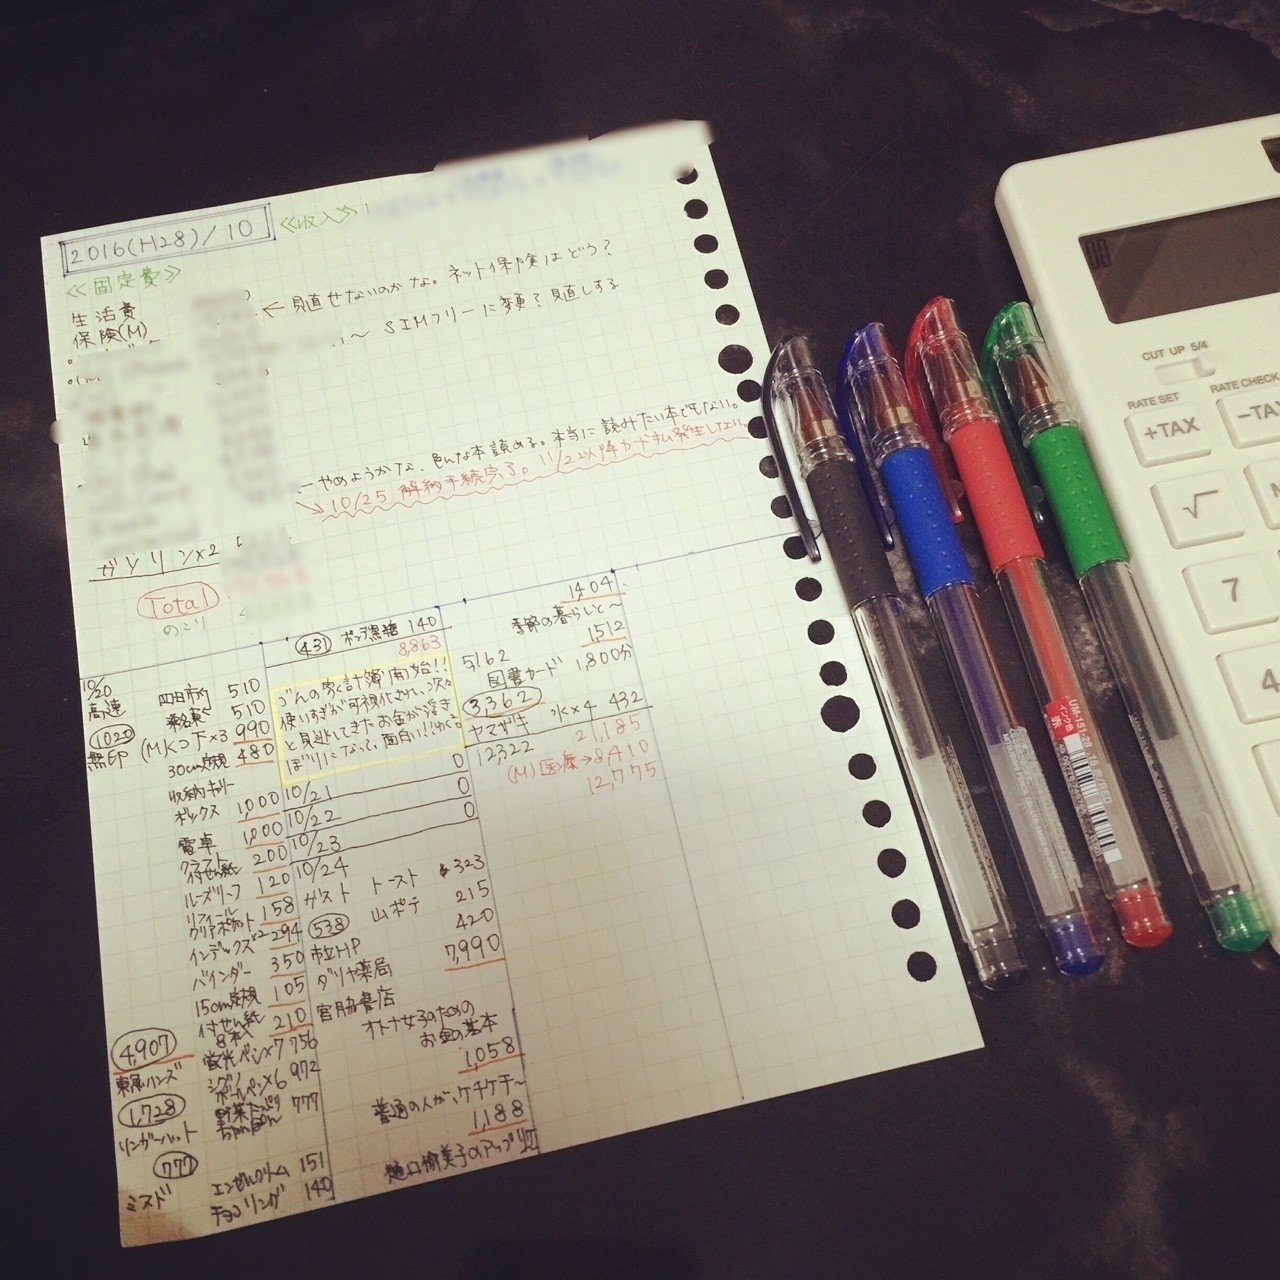 2016(H28)/10
≪収入≫
≪固定費≫
生活費
保険(M)
← 見直せないのかな。ネット保険はどう?
〜 SIMフリーに変更?見直しする
やめようかな、色んな本読める。本当に読みたい本でもない。
10/25 解約手続完了。11/2以降カード払発生しない。
ガソリン×2
Total
のこり
10/20
高速 四日市 510
510
1020
無印 (M)くつ下×3 990
30cm定規 480
収納キャリー
ボックス 1,000
電卓 1,000
クラフト
付せん紙 200
ルーズリーフ 120
リフィール
クリアポケット 158
インデックス×2 294
バインダー 350
15cm定規 105
付せん紙 210
4,907
8本入
蛍光ペン×7 756
東急ハンズ
シグノ
ボールペン×6 972
1,728
リンガーハット 野菜たっぷり
ちゃんぽん 777
777
ミスド エンゼルクリーム 151
チョコリング 140
431 ポンデ黒糖 140
8,863
づんの家計簿 開始!!
使いすぎが可視化されて、次々
と見逃してきたお金が浮き
ぼりになって、面白い!!わくわく
0
10/21 0
10/22 0
10/23
10/24
ガスト トースト 323
山ポテ 215
538
市立HP 420
ダリヤ薬局 7,990
宮脇書店
オトナ女子のための
お金の基本
1,058
普通の人が、ケチケチ〜
1,188
樋口愉美子のアップリケ
1404
季節の暮らしと〜
1512
5162
図書カード 1,800分
3,362
ヤマザキ 水×4 432
12,322
21,185
(M)医療→8,410
12,775
00
CUT UP 5/4
RATE SET
RATE CHECK
+TAX
-TAX
√
7
4
UM-151-28
インク色
赤